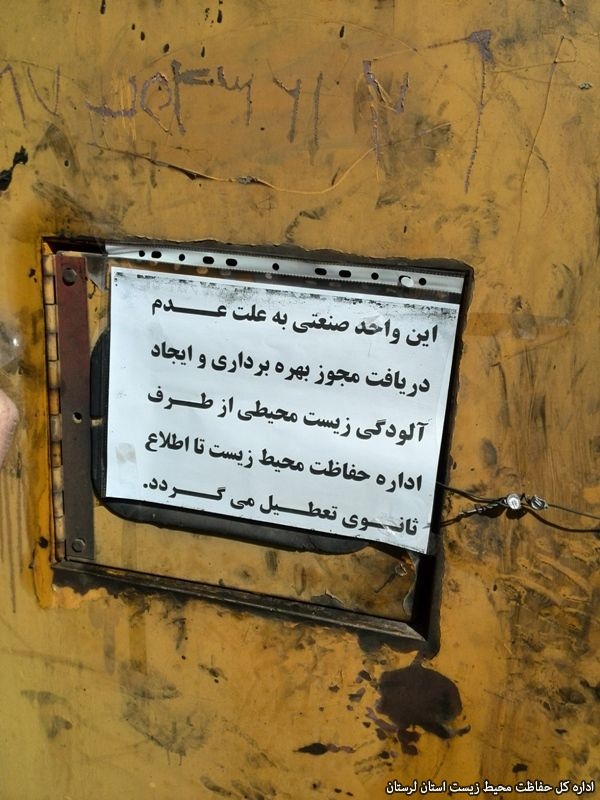 این واحد صنعتی به علت عدم
دریافت مجوز بهره برداری و ایجاد
آلودگی زیست محیطی از طرف
اداره حفاظت محیط زیست تا اطلاع
ثانوی تعطیل می گردد.
اداره کل حفاظت محیط زیست استان لرستان